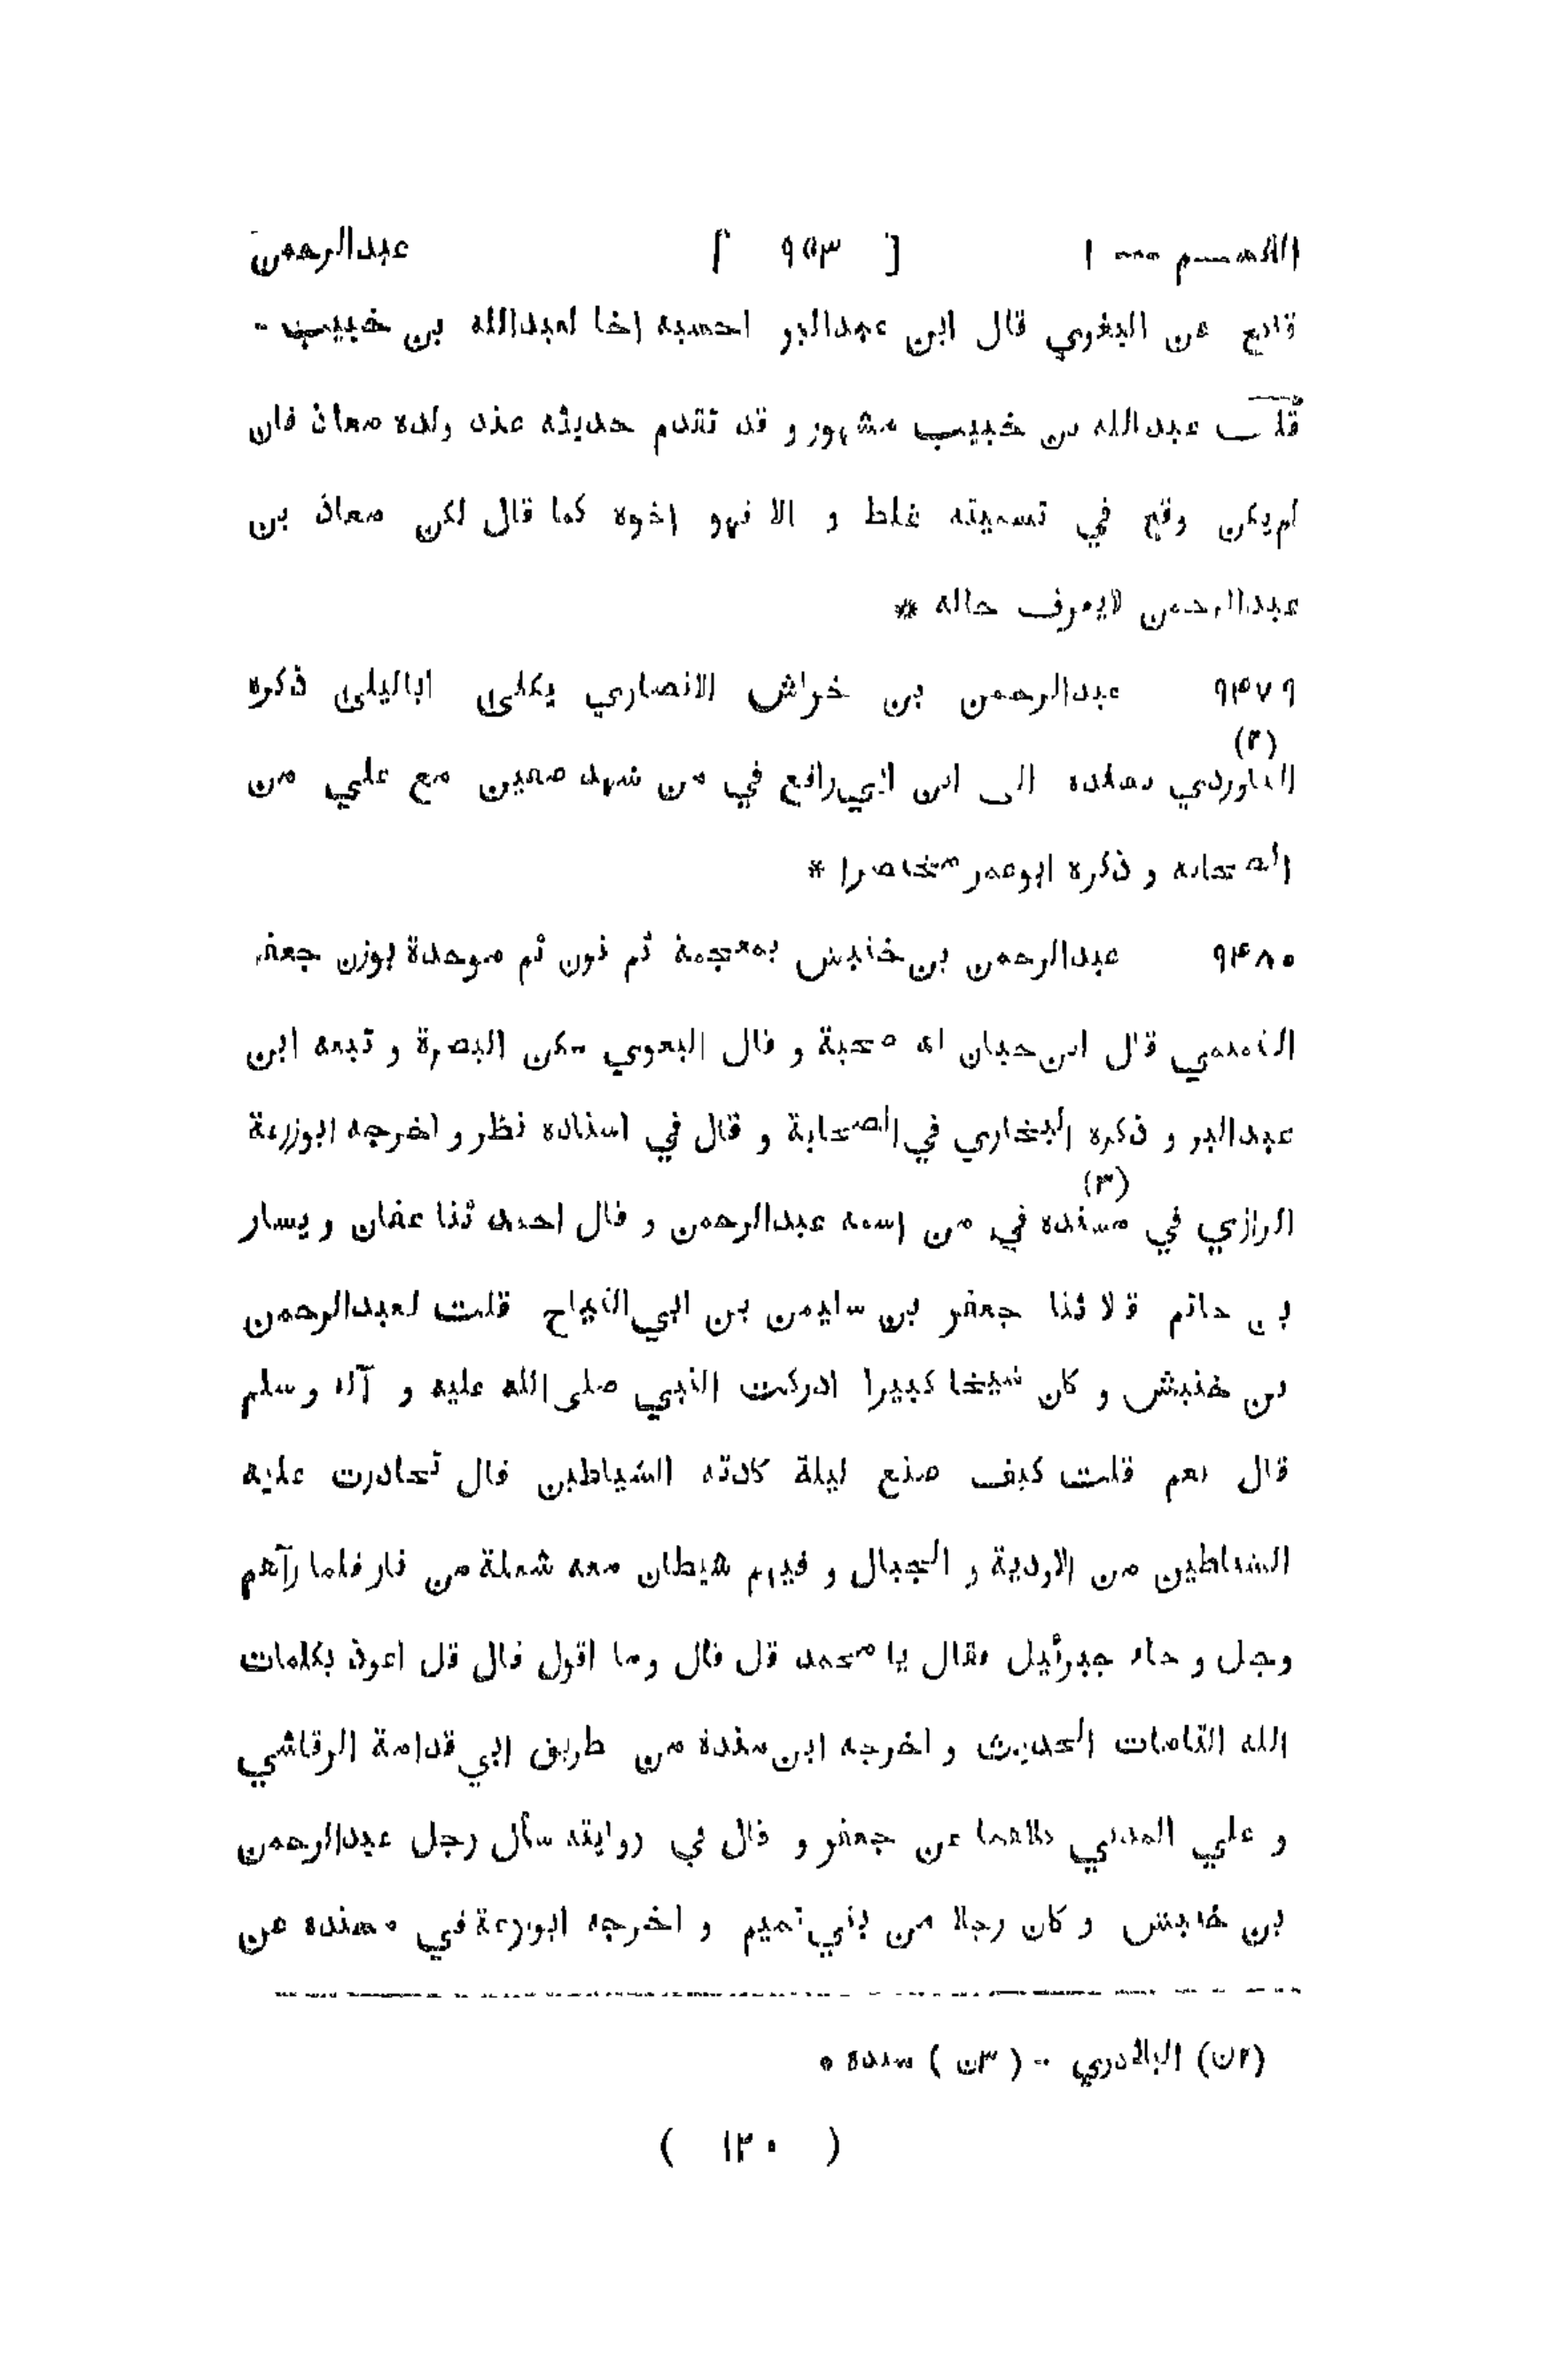 القسم — ١ [ ٩٥٣ ] عبدالرحمن
قانع عن البغوي قال ابن عبدالبر احسبه اخا لعبدالله بن خبيب -
قلت عبدالله بن خبيب مشهور و قد تقدم حديثه عند ولده معاذ فان
لم يكن وقع في تسميته غلط و الا فهو اخوه كما قال لكن معاذ بن
عبدالرحمن لايعرف حاله *
٩٤٧٩ عبدالرحمن بن خراش الانصاري يكنى اباليلى ذكره
(٢)
الباوردي بسنده الى ابن ابي رافع في من شهد صفين مع علي من
الصحابة و ذكره ابوعمر مختصرا *
٩٤٨٠ عبدالرحمن بن خنبش بمعجمة ثم نون ثم موحدة بوزن جعفر
التميمي قال ابن حبان له صحبة و قال البغوي سكن البصرة و تبعه ابن
عبدالبر و ذكره البخاري في الصحابة و قال في اسناده نظر و اخرجه ابوزرعة
(٣)
الرازي في مسنده في من اسمه عبدالرحمن و قال احمد ثنا عفان و يسار
بن حاتم قالا ثنا جعفر بن سليمن بن ابي التياح قلت لعبدالرحمن
بن خنبش و كان شيخا كبيرا ادركت النبي صلى الله عليه و آله و سلم
قال نعم قلت كيف صنع ليلة كادته الشياطين قال تحادرت عليه
الشياطين من الاودية و الجبال و فيهم شيطان معه شعلة من نار فلما رآهم
وجل و جاء جبرئيل فقال يا محمد قل قال وما اقول قال قل اعوذ بكلمات
الله التامات الحديث و اخرجه ابن مندة من طريق ابي قدامة الرقاشي
و علي المديني كلاهما عن جعفر و قال في روايته سأل رجل عبدالرحمن
بن خنبش و كان رجلا من بني تميم و اخرجه ابوزرعة في مسنده عن
(٢ن) البلاذري - (٣ن) سنده *
( ١٢٠ )